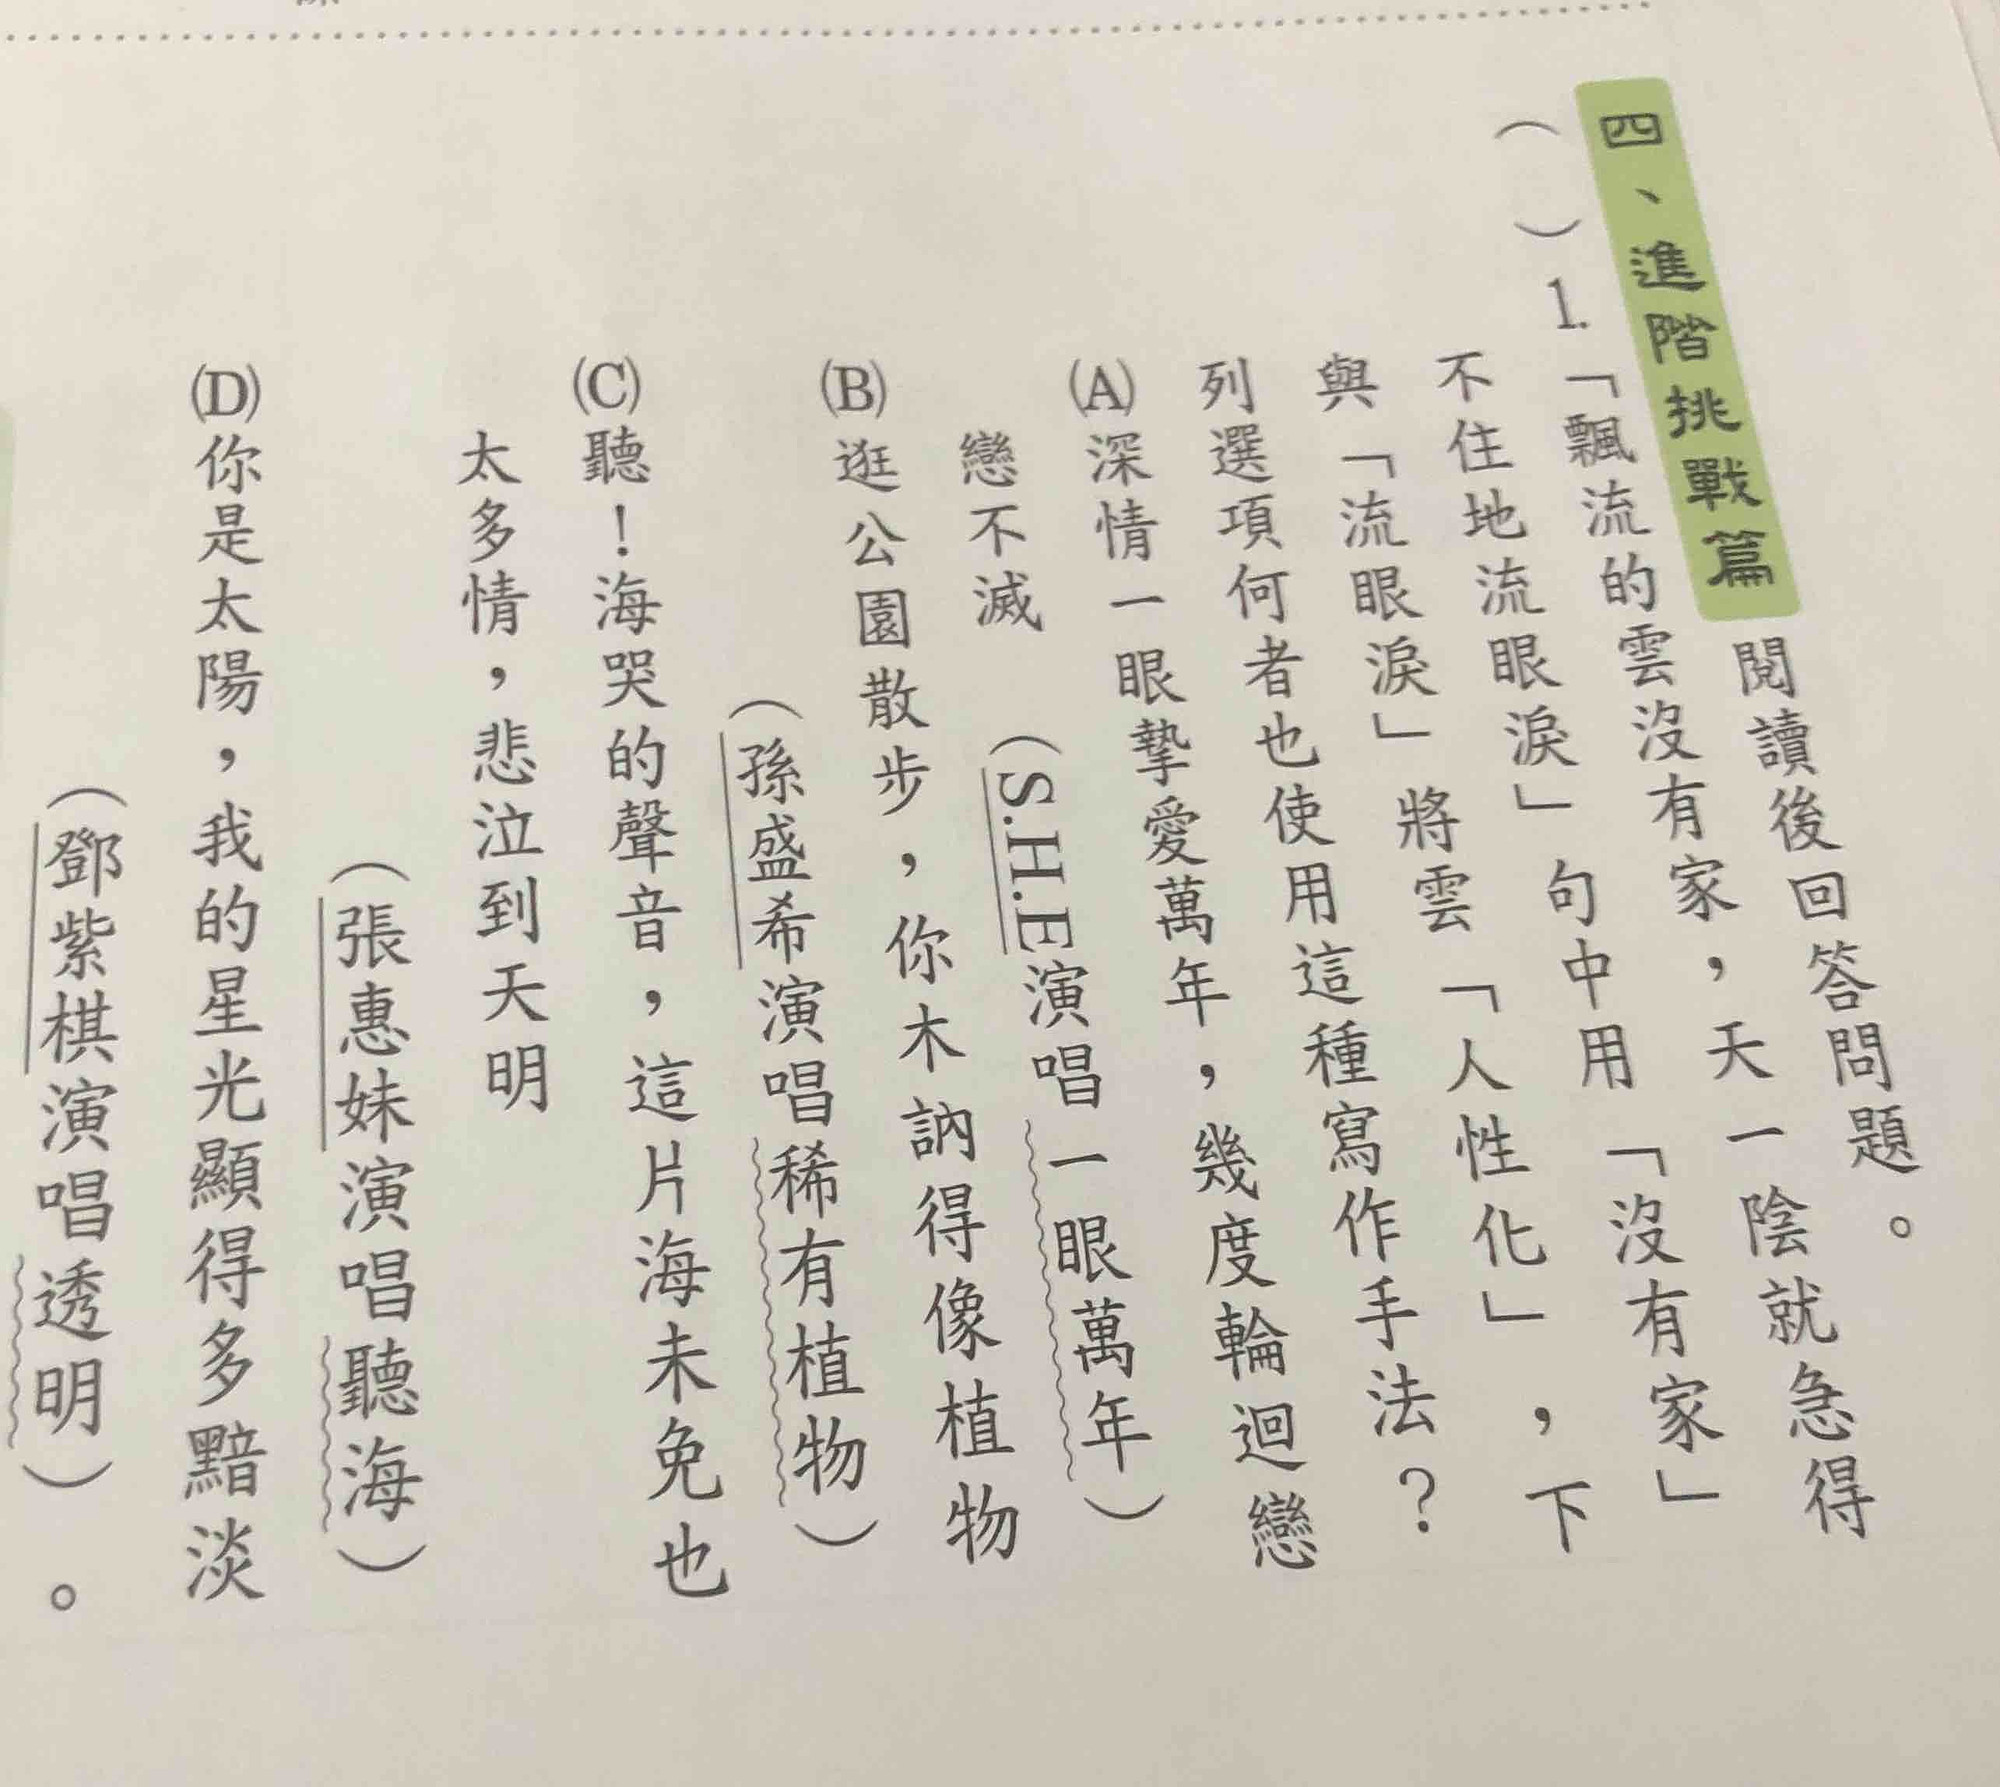 四、進階挑戰篇 閱讀後回答問題。
（ ）1.「飄流的雲沒有家，天一陰就急得
不住地流眼淚」句中用「沒有家」
與「流眼淚」將雲「人性化」，下
列選項何者也使用這種寫作手法？
(A)深情一眼摯愛萬年，幾度輪迴戀
戀不滅 （S.H.E演唱一眼萬年）
(B)逛公園散步，你木訥得像植物
（孫盛希演唱稀有植物）
(C)聽！海哭的聲音，這片海未免也
太多情，悲泣到天明
（張惠妹演唱聽海）
(D)你是太陽，我的星光顯得多黯淡
（鄧紫棋演唱透明）。